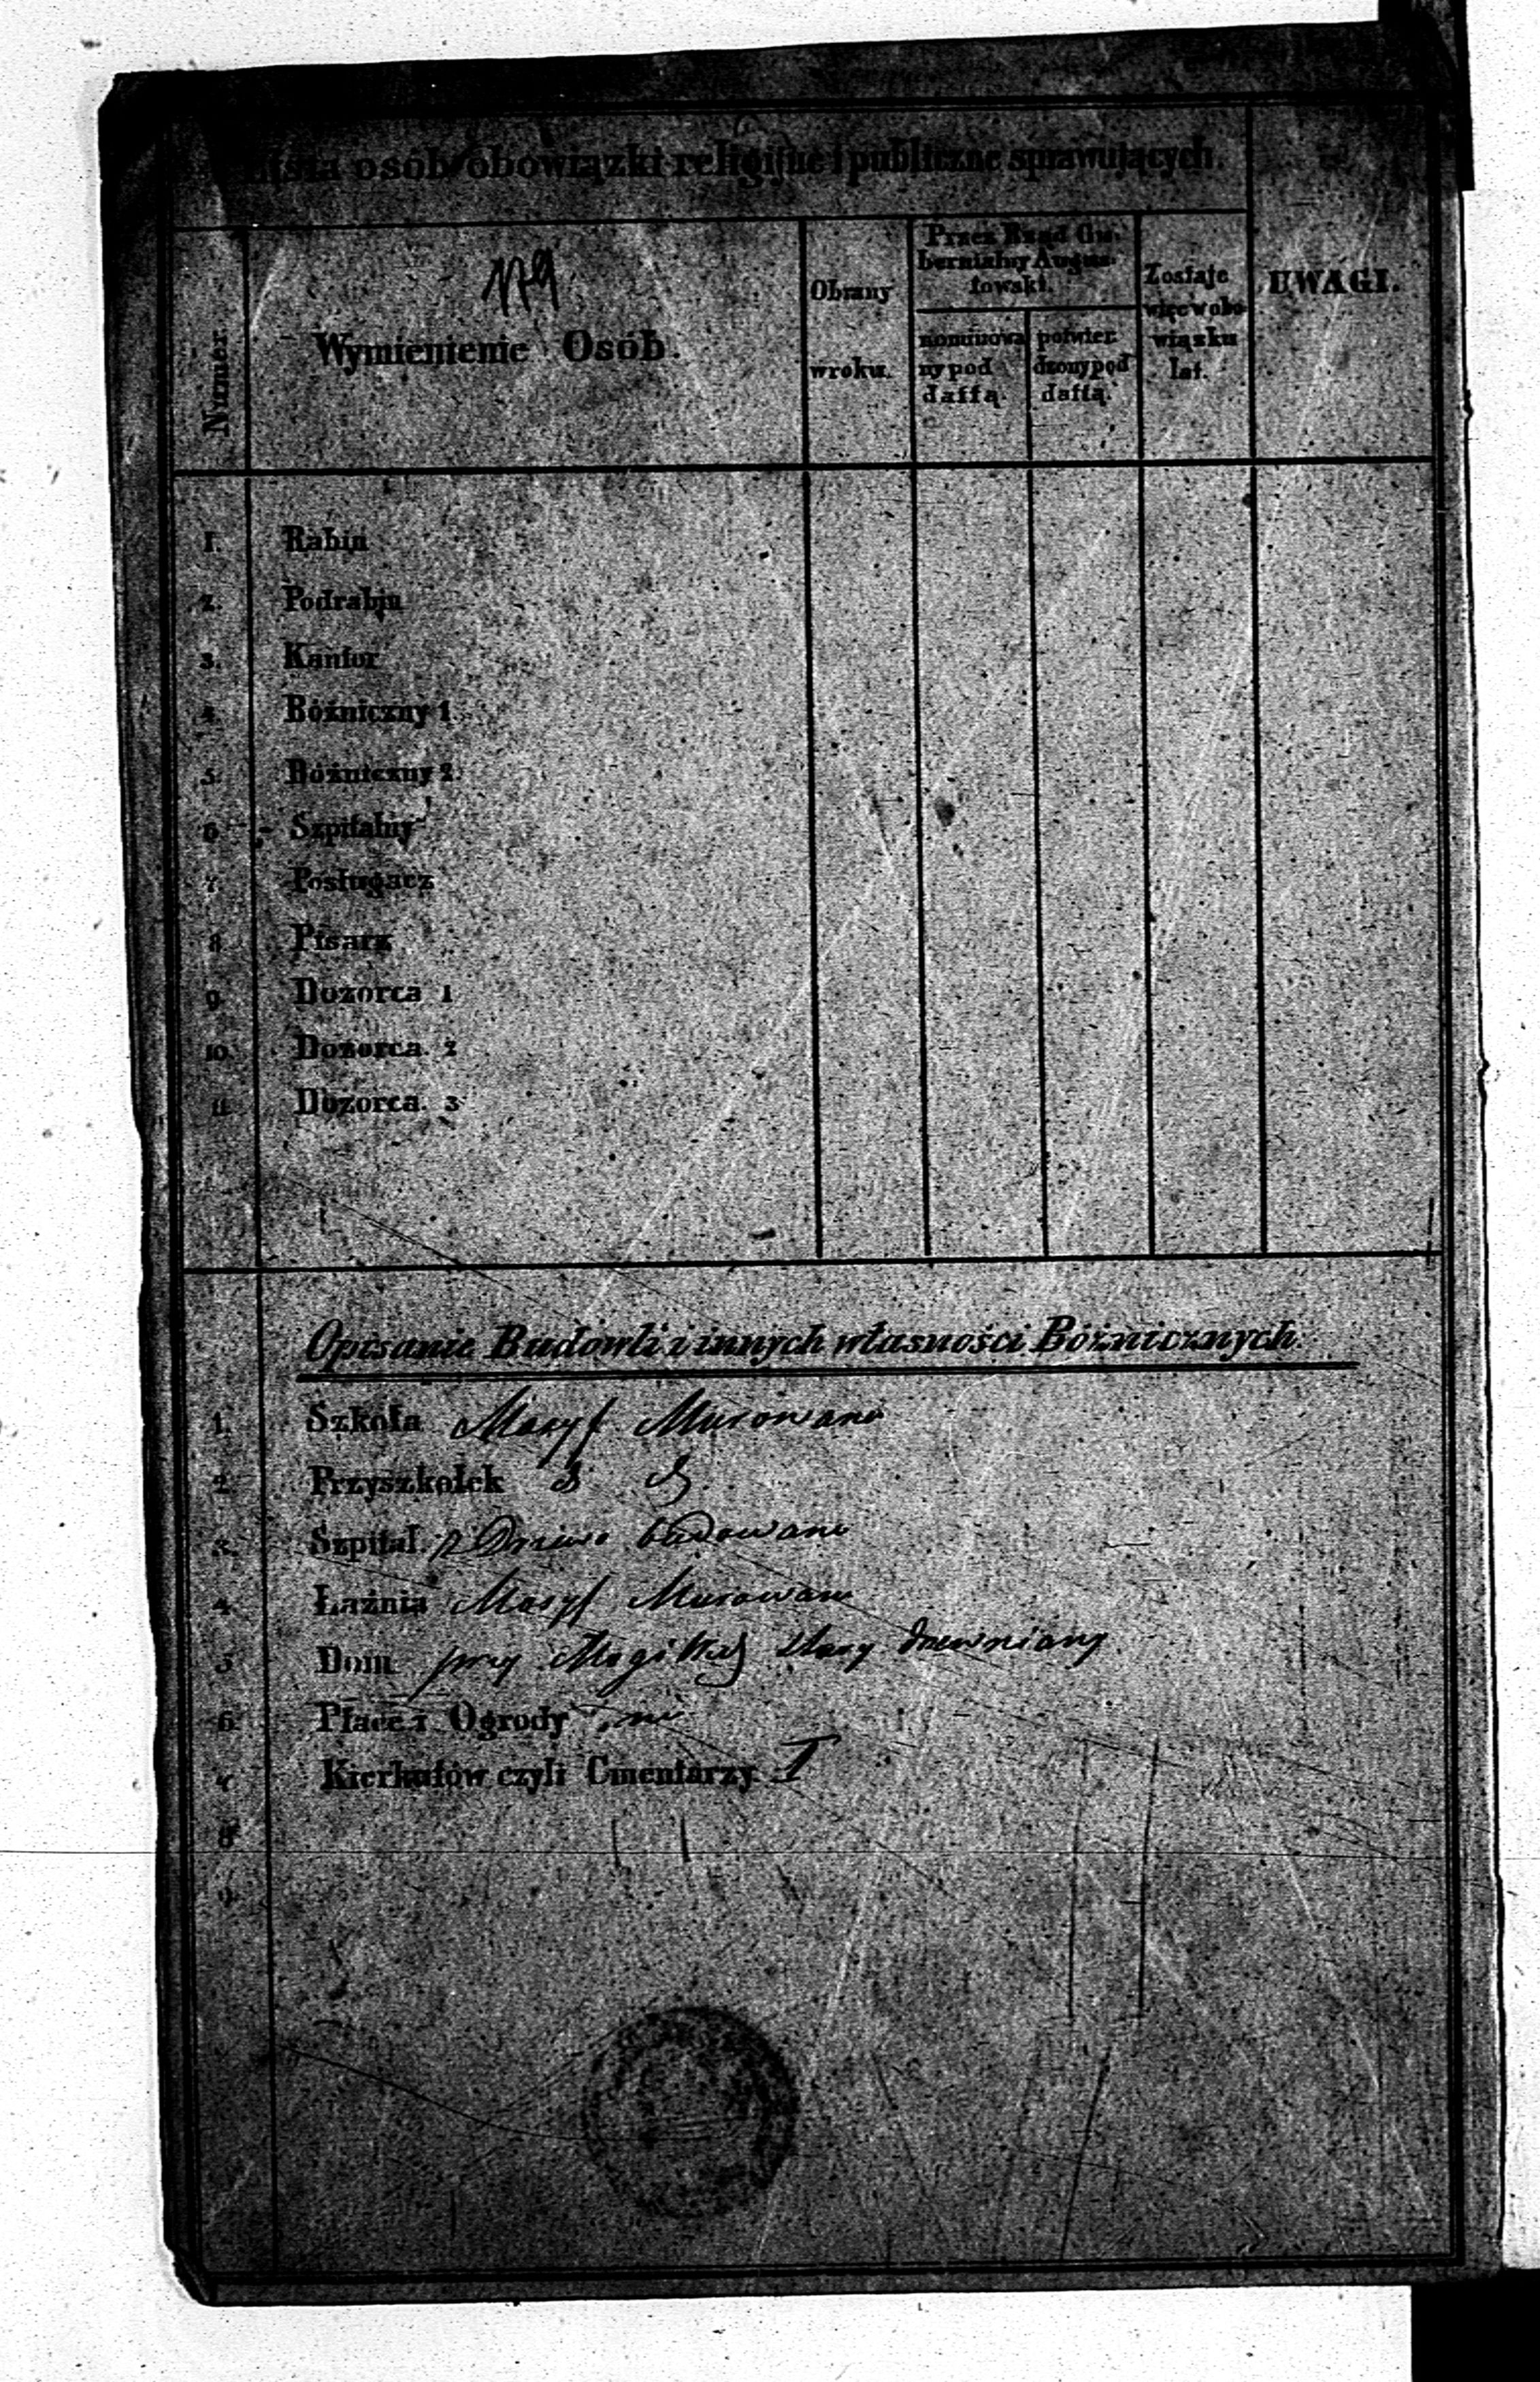 Lista osób obowiązki religijne i publiczne sprawujących.
Numer
179
Wymienienie Osób.
Obrany wroku.
Przez Rząd Gu-
bernialny Augus-
towski.
nominowa
ny pod
dattą.
potwier.
dzony pod
dattą.
Zostaje
więc w obo-
wiązku
lat.
UWAGI.
1. Rabin
2. Podrabin
3. Kantor
4. Bóźniczny 1.
5. Bóźniczny 2.
6. Szpitalny
7. Posługacz
8. Pisarz
9. Dozorca 1
10. Dozorca. 2
11. Dozorca. 3
Opisanie Budowli i innych własności Bóżnicznych.
1. Szkoła Masyf Murowane
2. Przyszkołek
3. Szpital. z budowane
4. Łaźnia Masyf Murowane
5. Dom przy stary drewniany
6. Place i Ogrody
7. Kierkutów czyli Cmentarzy. I
8.
9.